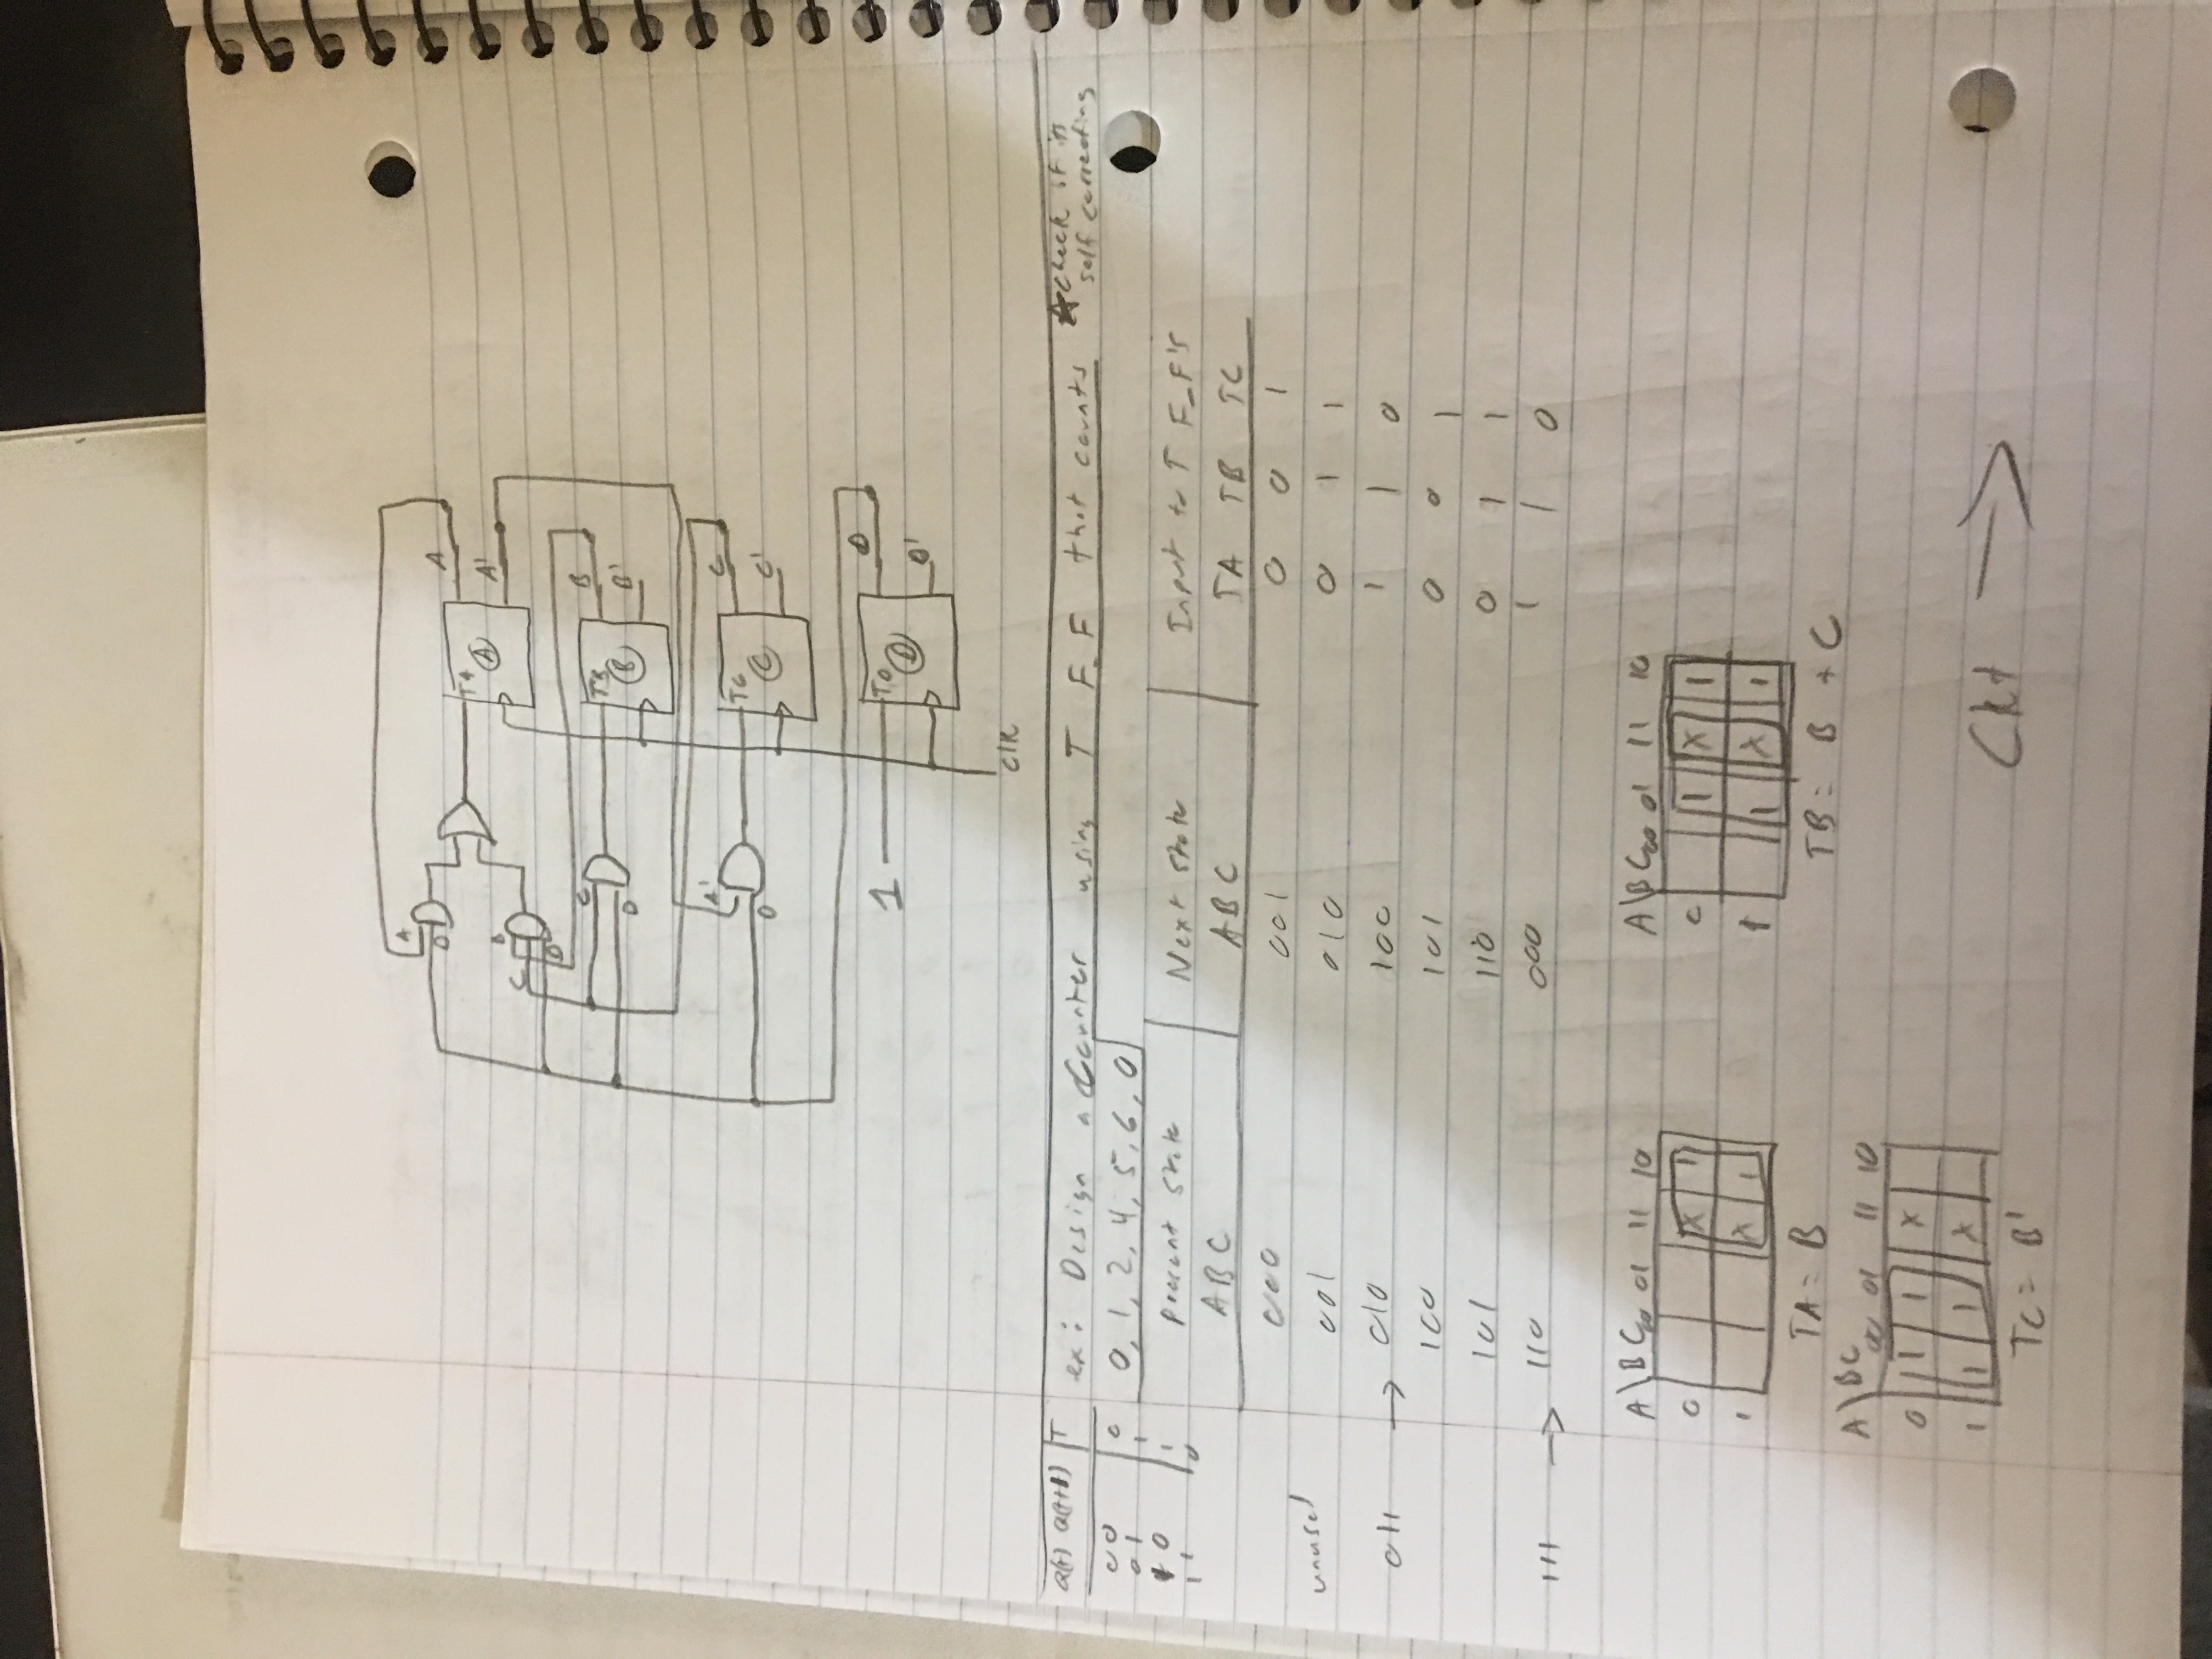 A
D
A
TA
A
A'
B
C
D
C
D
TB
B
B
B'
A'
D
TC
C
C
C'
1
TD
D
D
D'
Clk
Q(t) Q(t+1) T
00 0
01 1
10 1
11 0
ex: Design a Counter using T F-F that counts
★ check if its self correcting
0, 1, 2, 4, 5, 6, 0
Present State Next State Input to T F-F's
ABC ABC TA TB TC
000 001 0 0 1
unused
001 010 0 1 1
011 → 010 100 1 1 0
100 101 0 0 1
101 110 0 1 1
111 → 110 000 1 1 0
A\BC 00 01 11 10
0 X 1
1 X 1
TA = B
A\BC 00 01 11 10
0 1 X 1
1 1 X 1
TB = B + C
A\BC 00 01 11 10
0 1 1 X
1 1 1 X
TC = B'
Ckt →